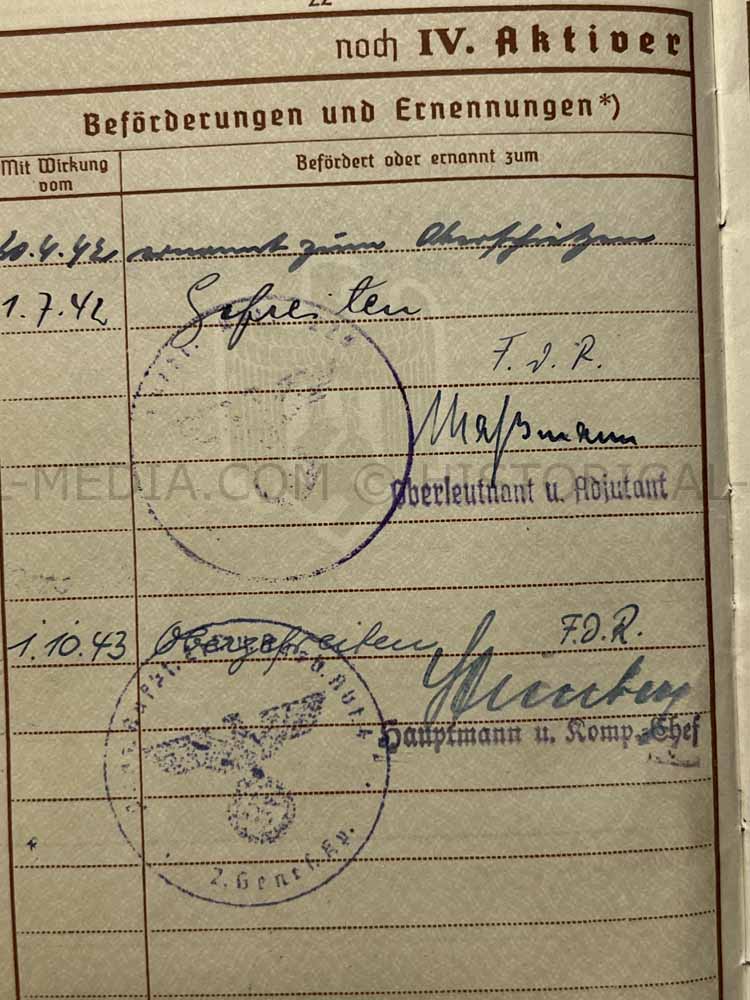 22
noch IV. Aktiver
Beförderungen und Ernennungen*)
Mit Wirkung
vom
Befördert oder ernannt zum
20.4.42 ernannt zum Oberschützen
1.7.42 Gefreiten
F.d.R.
Maßmann
Oberleutnant u. Adjutant
L-MEDIA.COM © HISTORICAL-
1.10.43 Obergefreiten F.d.R.
Hauptmann u. Komp.-Chef
2. Genes. Kp.